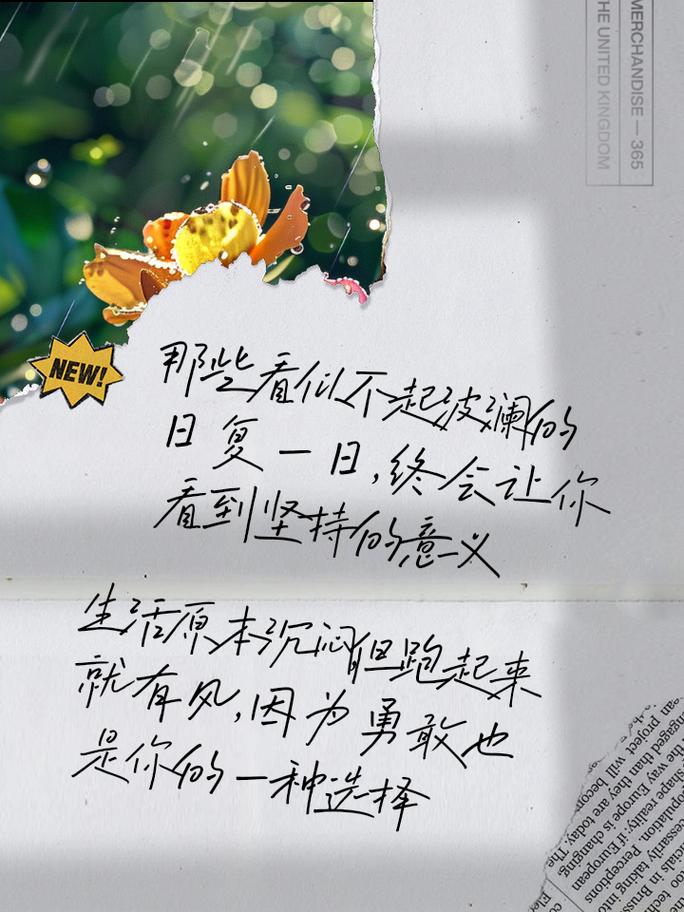 MERCHANDISE — 365
THE UNITED KINGDOM
NEW!
那些看似不起波澜的
日复一日,终会让你
看到坚持的意义
生活原本沉闷但跑起来
就有风,因为勇敢也
是你的一种选择
too tech
cials in Bruss
cessarily taking into
opulation. Perceptions
shape reality: if European
the way Europe is changing
ngaged than they are today. The
an project will becom